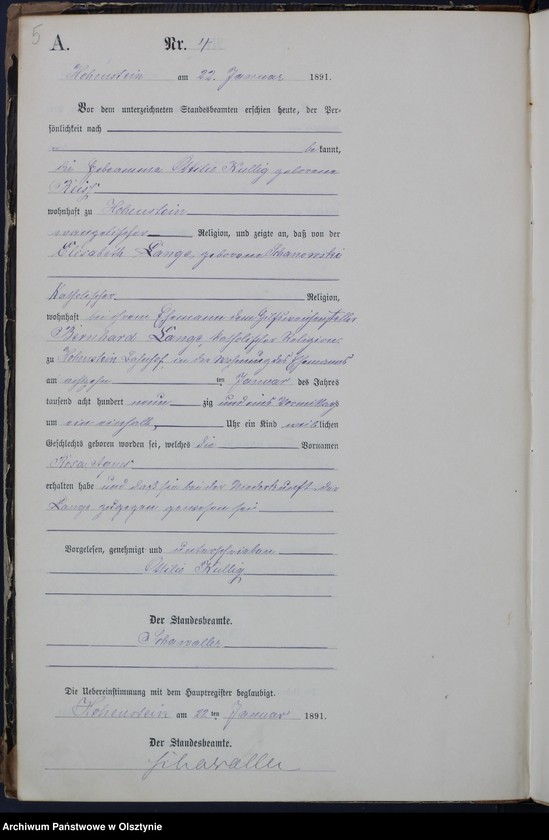 5
A. Nr. 4
Hohenstein am 22. Januar 1891.
Vor dem unterzeichneten Standesbeamten erschien heute, der Per-
sönlichkeit nach
bekannt,
die Hebeamme Ottilie Kullig geborene
wohnhaft zu Hohenstein
evangelischer Religion, und zeigte an, daß von der
Elisabeth Lange, geborene Schanowski
katholischer Religion,
wohnhaft bei ihrem Ehemann dem Hilfsweichensteller
Bernhard Lange, katholischer Religion,
zu Hohenstein Bahnhof, in der Wohnung des Ehemanns
am achtzehn ten Januar des Jahres
tausend acht hundert neun zig und eins Vormittags
um ein einhalb Uhr ein Kind weiblichen
Geschlechts geboren worden sei, welches die Vornamen
Rosa Agnes
erhalten habe und daß sie bei der Niederkunft der
Lange zugegen gewesen sei
Vorgelesen, genehmigt und unterschrieben
Ottilie Kullig
Der Standesbeamte.
Schawaller
Die Uebereinstimmung mit dem Hauptregister beglaubigt.
Hohenstein am 22 ten Januar 1891.
Der Standesbeamte.
Schawaller
Archiwum Państwowe w Olsztynie